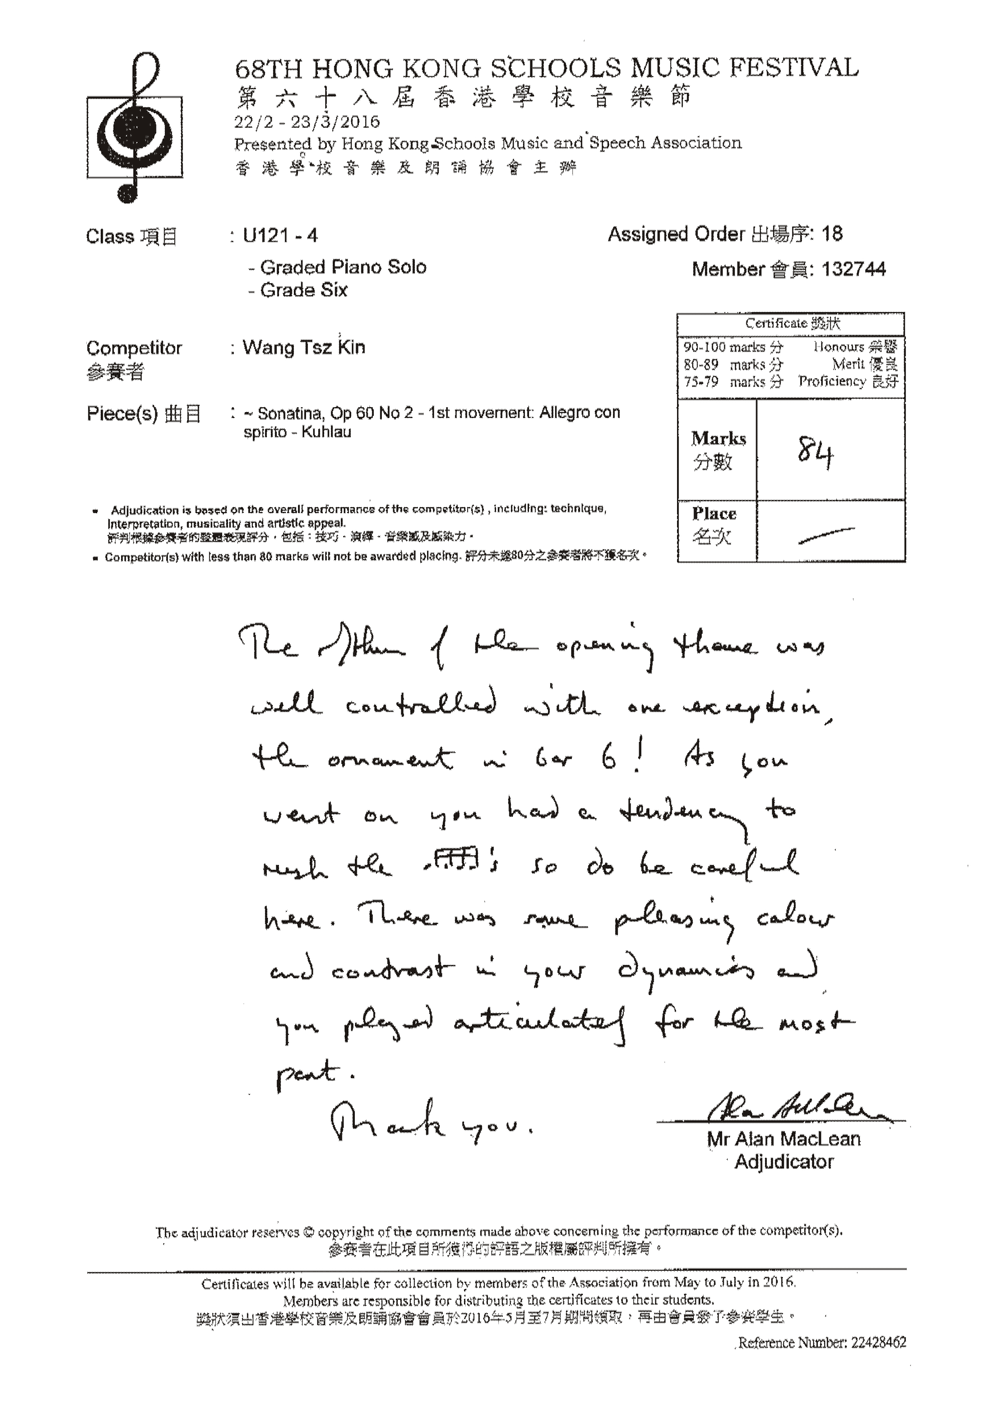 68TH HONG KONG SCHOOLS MUSIC FESTIVAL
第六十八屆香港學校音樂節
22/2 - 23/3/2016
Presented by Hong Kong Schools Music and Speech Association
香港學校音樂及朗誦協會主辦
Class 項目 : U121 - 4
Assigned Order 出場序: 18
- Graded Piano Solo
Member 會員: 132744
- Grade Six
Certificate 獎狀
90-100 marks 分 Honours 榮譽
80-89 marks 分 Merit 優良
75-79 marks 分 Proficiency 良好
Competitor : Wang Tsz Kin
參賽者
Piece(s) 曲目 : ~ Sonatina, Op 60 No 2 - 1st movement: Allegro con
spirito - Kuhlau
Marks 84
分數
Place
名次
Adjudication is based on the overall performance of the competitor(s) , including: technique,
interpretation, musicality and artistic appeal.
評判根據參賽者的整體表現評分，包括：技巧、演繹、音樂感及感染力。
Competitor(s) with less than 80 marks will not be awarded placing. 評分未達80分之參賽者將不獲名次。
The rhythm of the opening theme was
well controlled with one exception,
the ornament in bar 6! As you
went on you had a tendency to
rush the 's so do be careful
here. There was some pleasing colour
and contrast in your dynamics and
you played articulately for the most
part.
Thank you.
Mr Alan MacLean
Adjudicator
The adjudicator reserves © copyright of the comments made above concerning the performance of the competitor(s).
參賽者在此項目所獲得的評語之版權屬評判所擁有。
Certificates will be available for collection by members of the Association from May to July in 2016.
Members are responsible for distributing the certificates to their students.
獎狀須由香港學校音樂及朗誦協會會員於2016年5月至7月期間領取，再由會員發予參賽學生。
Reference Number: 22428462